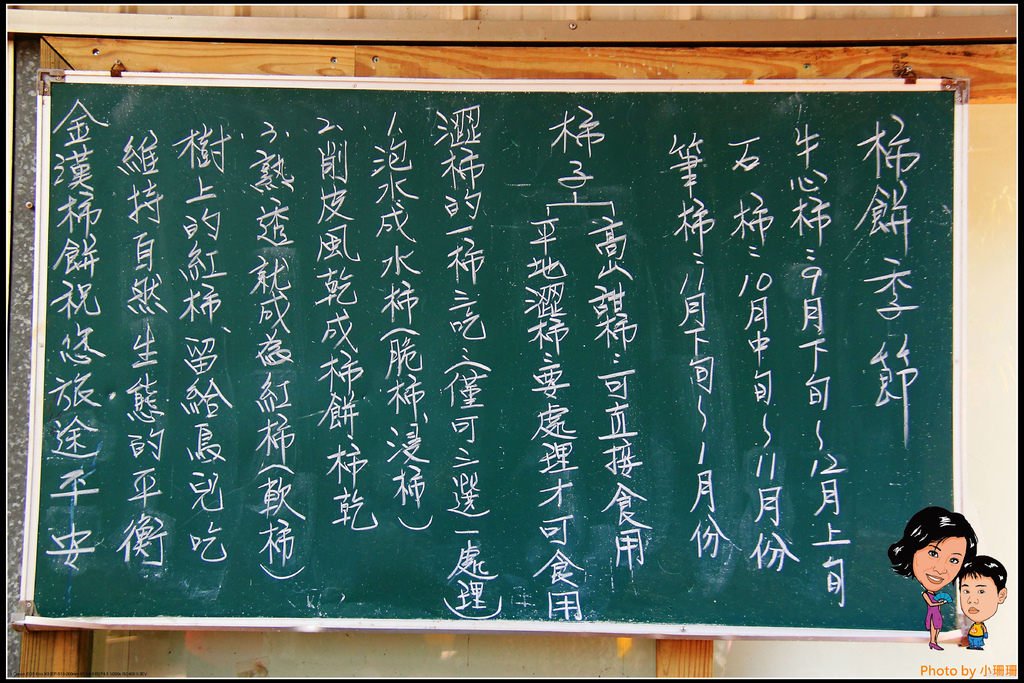 柿餅季節
牛心柿：9月下旬~12月上旬
石柿：10月中旬~11月份
筆柿：11月下旬~1月份
柿子
高山甜柿：可直接食用
平地澀柿：要處理才可食用
澀柿的一柿三吃：(僅可三選一處理)
1、泡水成水柿(脆柿、浸柿)
2、削皮風乾成柿餅柿乾
3、熟透就成為紅柿(軟柿)
樹上的紅柿、留給鳥兒吃
維持自然生態的平衡
金漢柿餅祝您旅途平安
Photo by 小珊珊